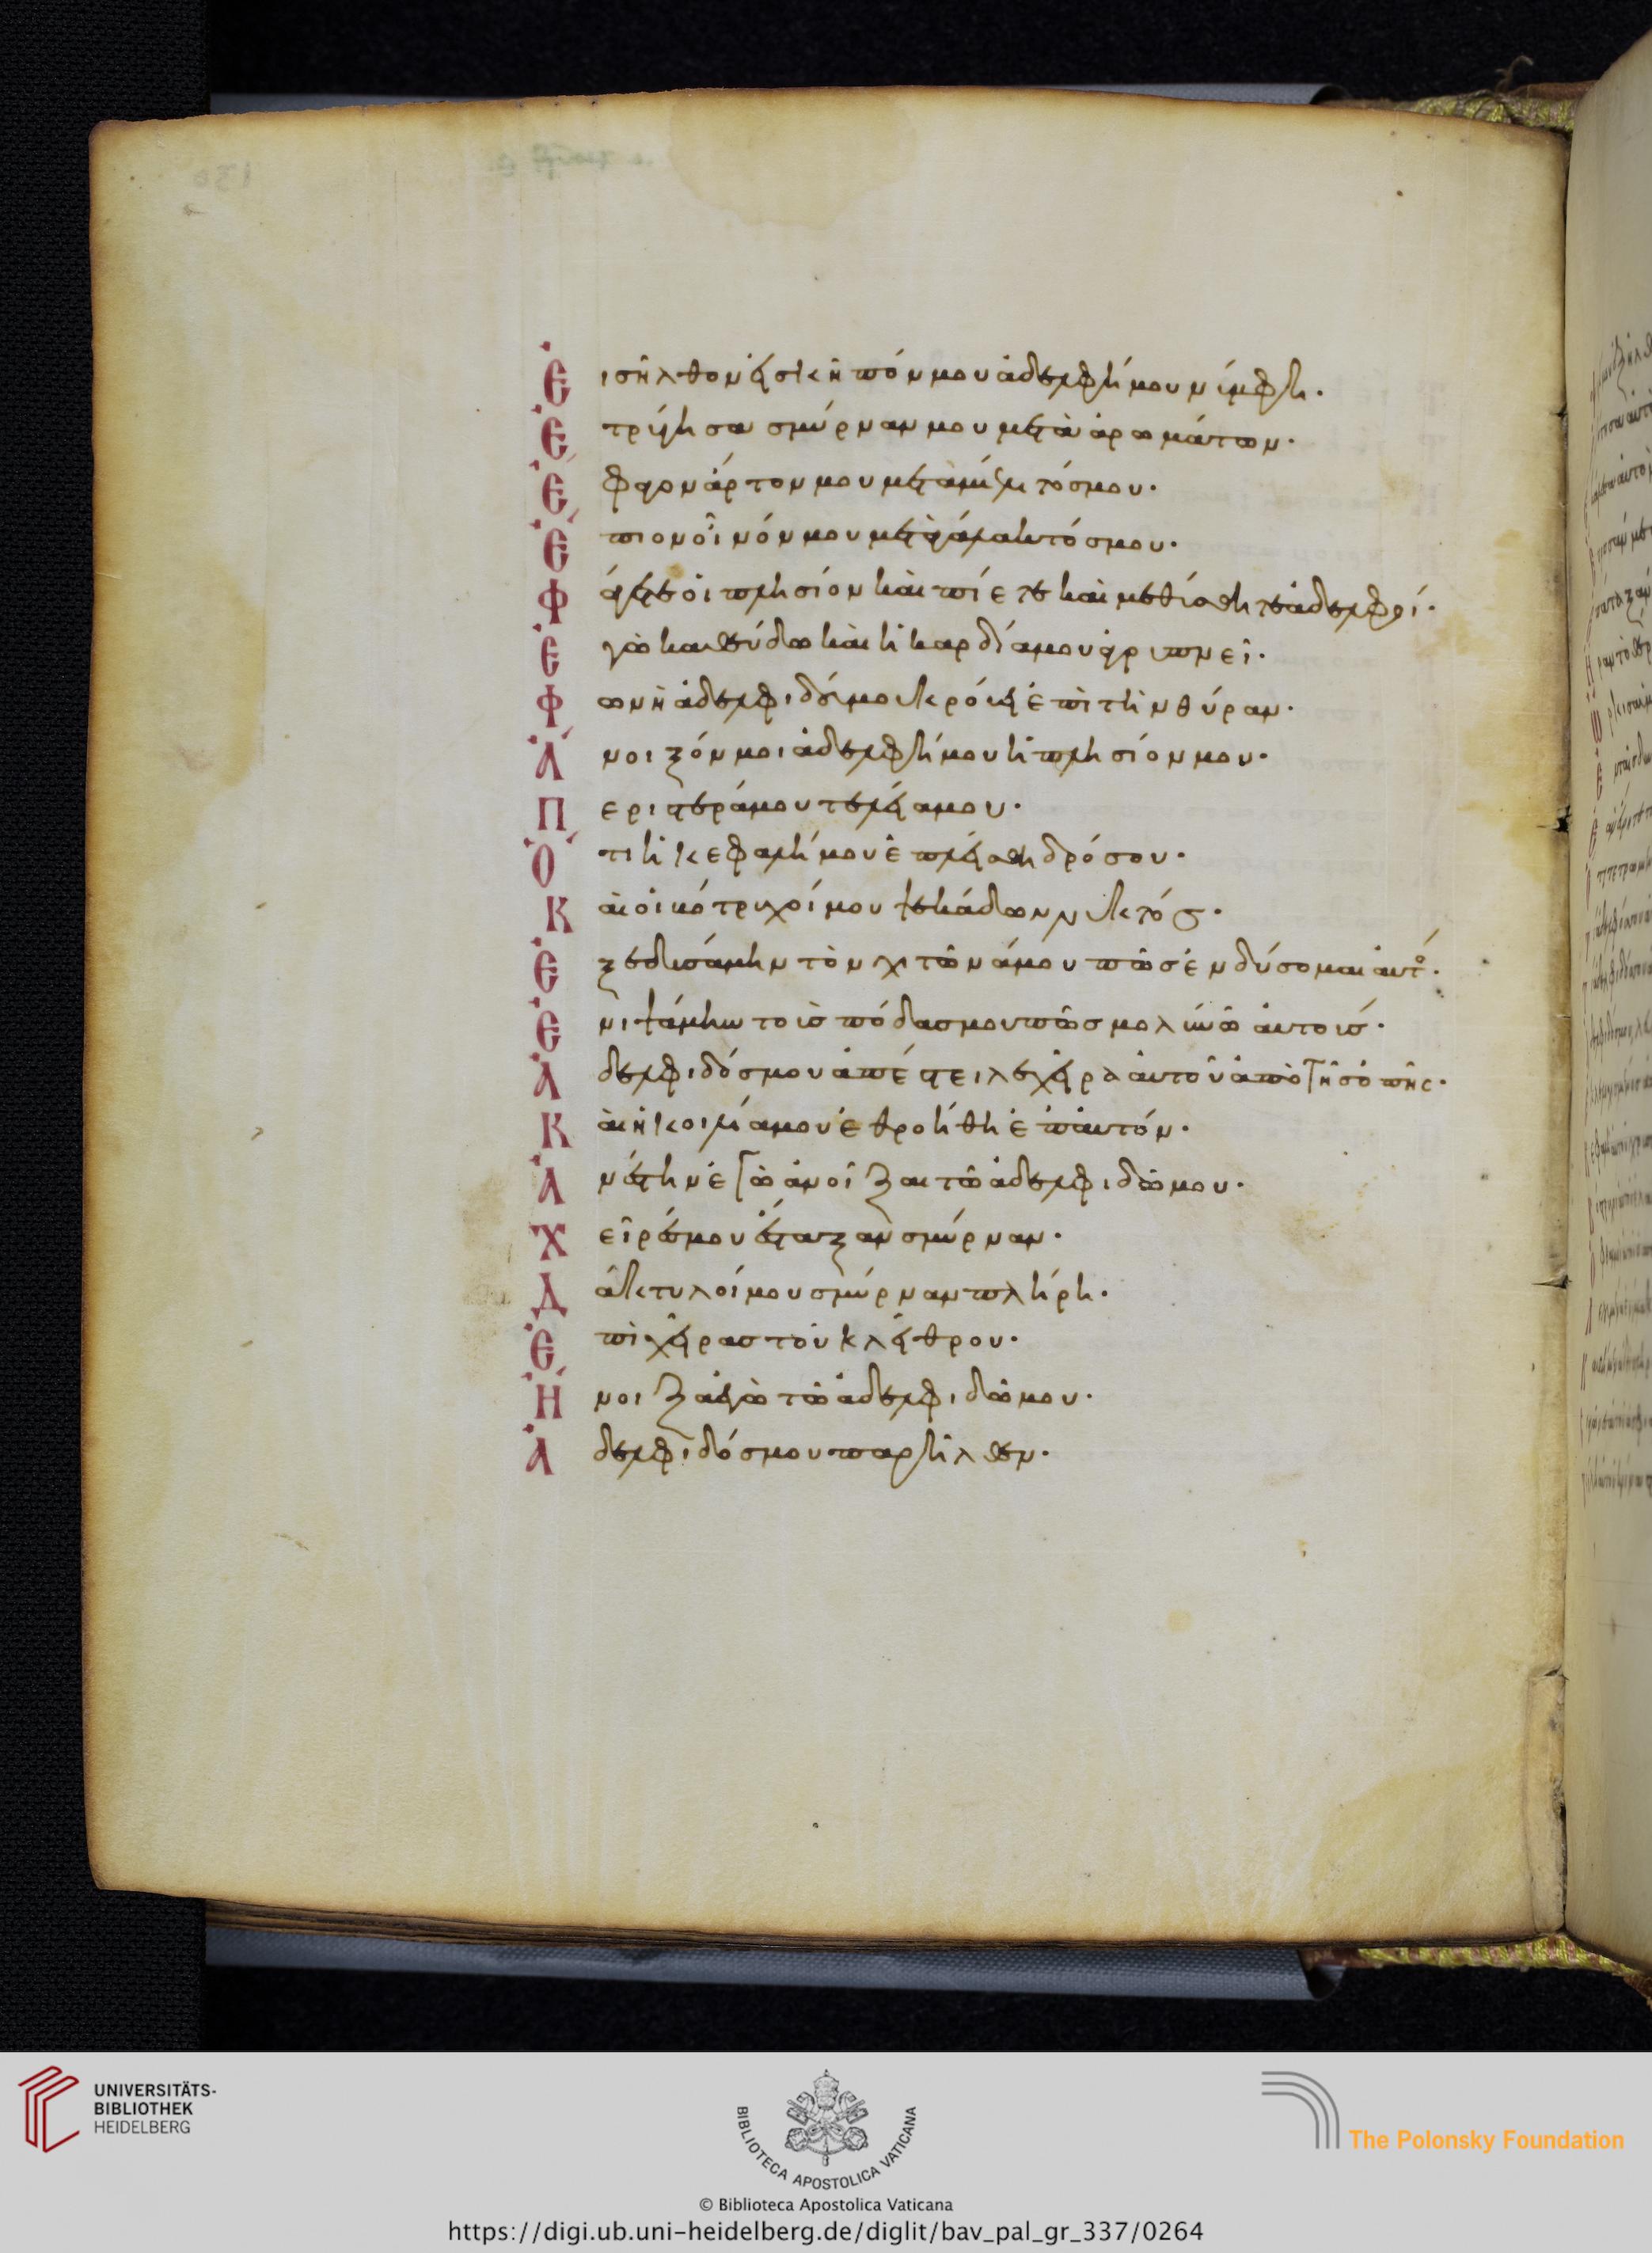 Ἐισῆλθον εἰσ κῆπόν μου ἀδελφή μου νύμφη·
Ἐτρύγησα σμύρναν μου μετὰ ἀρωμάτων·
Ἔφαγον ἄρτον μου μετὰ μέλιτόσ μου·
Ἔπιον οἶνόν μου μετὰ γάλακτόσ μου·
Φάγετε οἱ πλησίον καὶ πίετε καὶ μεθύσθητε ἀδελφοί·
Ἐγὼ καθεύδω καὶ ἡ καρδία μου ἀγρυπνεῖ·
Φωνὴ ἀδελφιδοῦ μου κρούει ἐπὶ τὴν θύραν·
Ἄνοιξόν μοι ἀδελφή μου ἡ πλησίον μου·
Περιστερά μου τελεία μου·
Ὅτι ἡ κεφαλή μου ἐπλείσθη δρόσου·
Καὶ οἱ βότρυχοί μου ψεκάδων νυκτός·
Ἐξεδυσάμην τὸν χιτῶνά μου πῶσ ἐνδύσομαι αὐτόν·
Ἐνιψάμην τοὺσ πόδασ μου πῶσ μολυνῶ αὐτούσ·
Ἀδελφιδόσ μου ἀπέστειλε χεῖρα αὐτοῦ ἀπὸ τῆσ ὀπῆς·
Καὶ ἡ κοιλία μου ἐθροήθη ἐπ' αὐτόν·
Ἀνέστην ἐγὼ ἀνοῖξαι τῶ ἀδελφιδῶ μου·
Χεῖρέσ μου ἔσταξαν σμύρναν·
Δάκτυλοί μου σμύρναν πλήρη·
Ἐπὶ χεῖρασ τοῦ κλείθρου·
Ἤνοιξα ἐγὼ τῶ ἀδελφιδῶ μου·
Ἀδελφιδόσ μου παρῆλθεν·
UNIVERSITÄTS-
BIBLIOTHEK
HEIDELBERG
BIBLIOTECA APOSTOLICA VATICANA
The Polonsky Foundation
© Biblioteca Apostolica Vaticana
https://digi.ub.uni-heidelberg.de/diglit/bav_pal_gr_337/0264